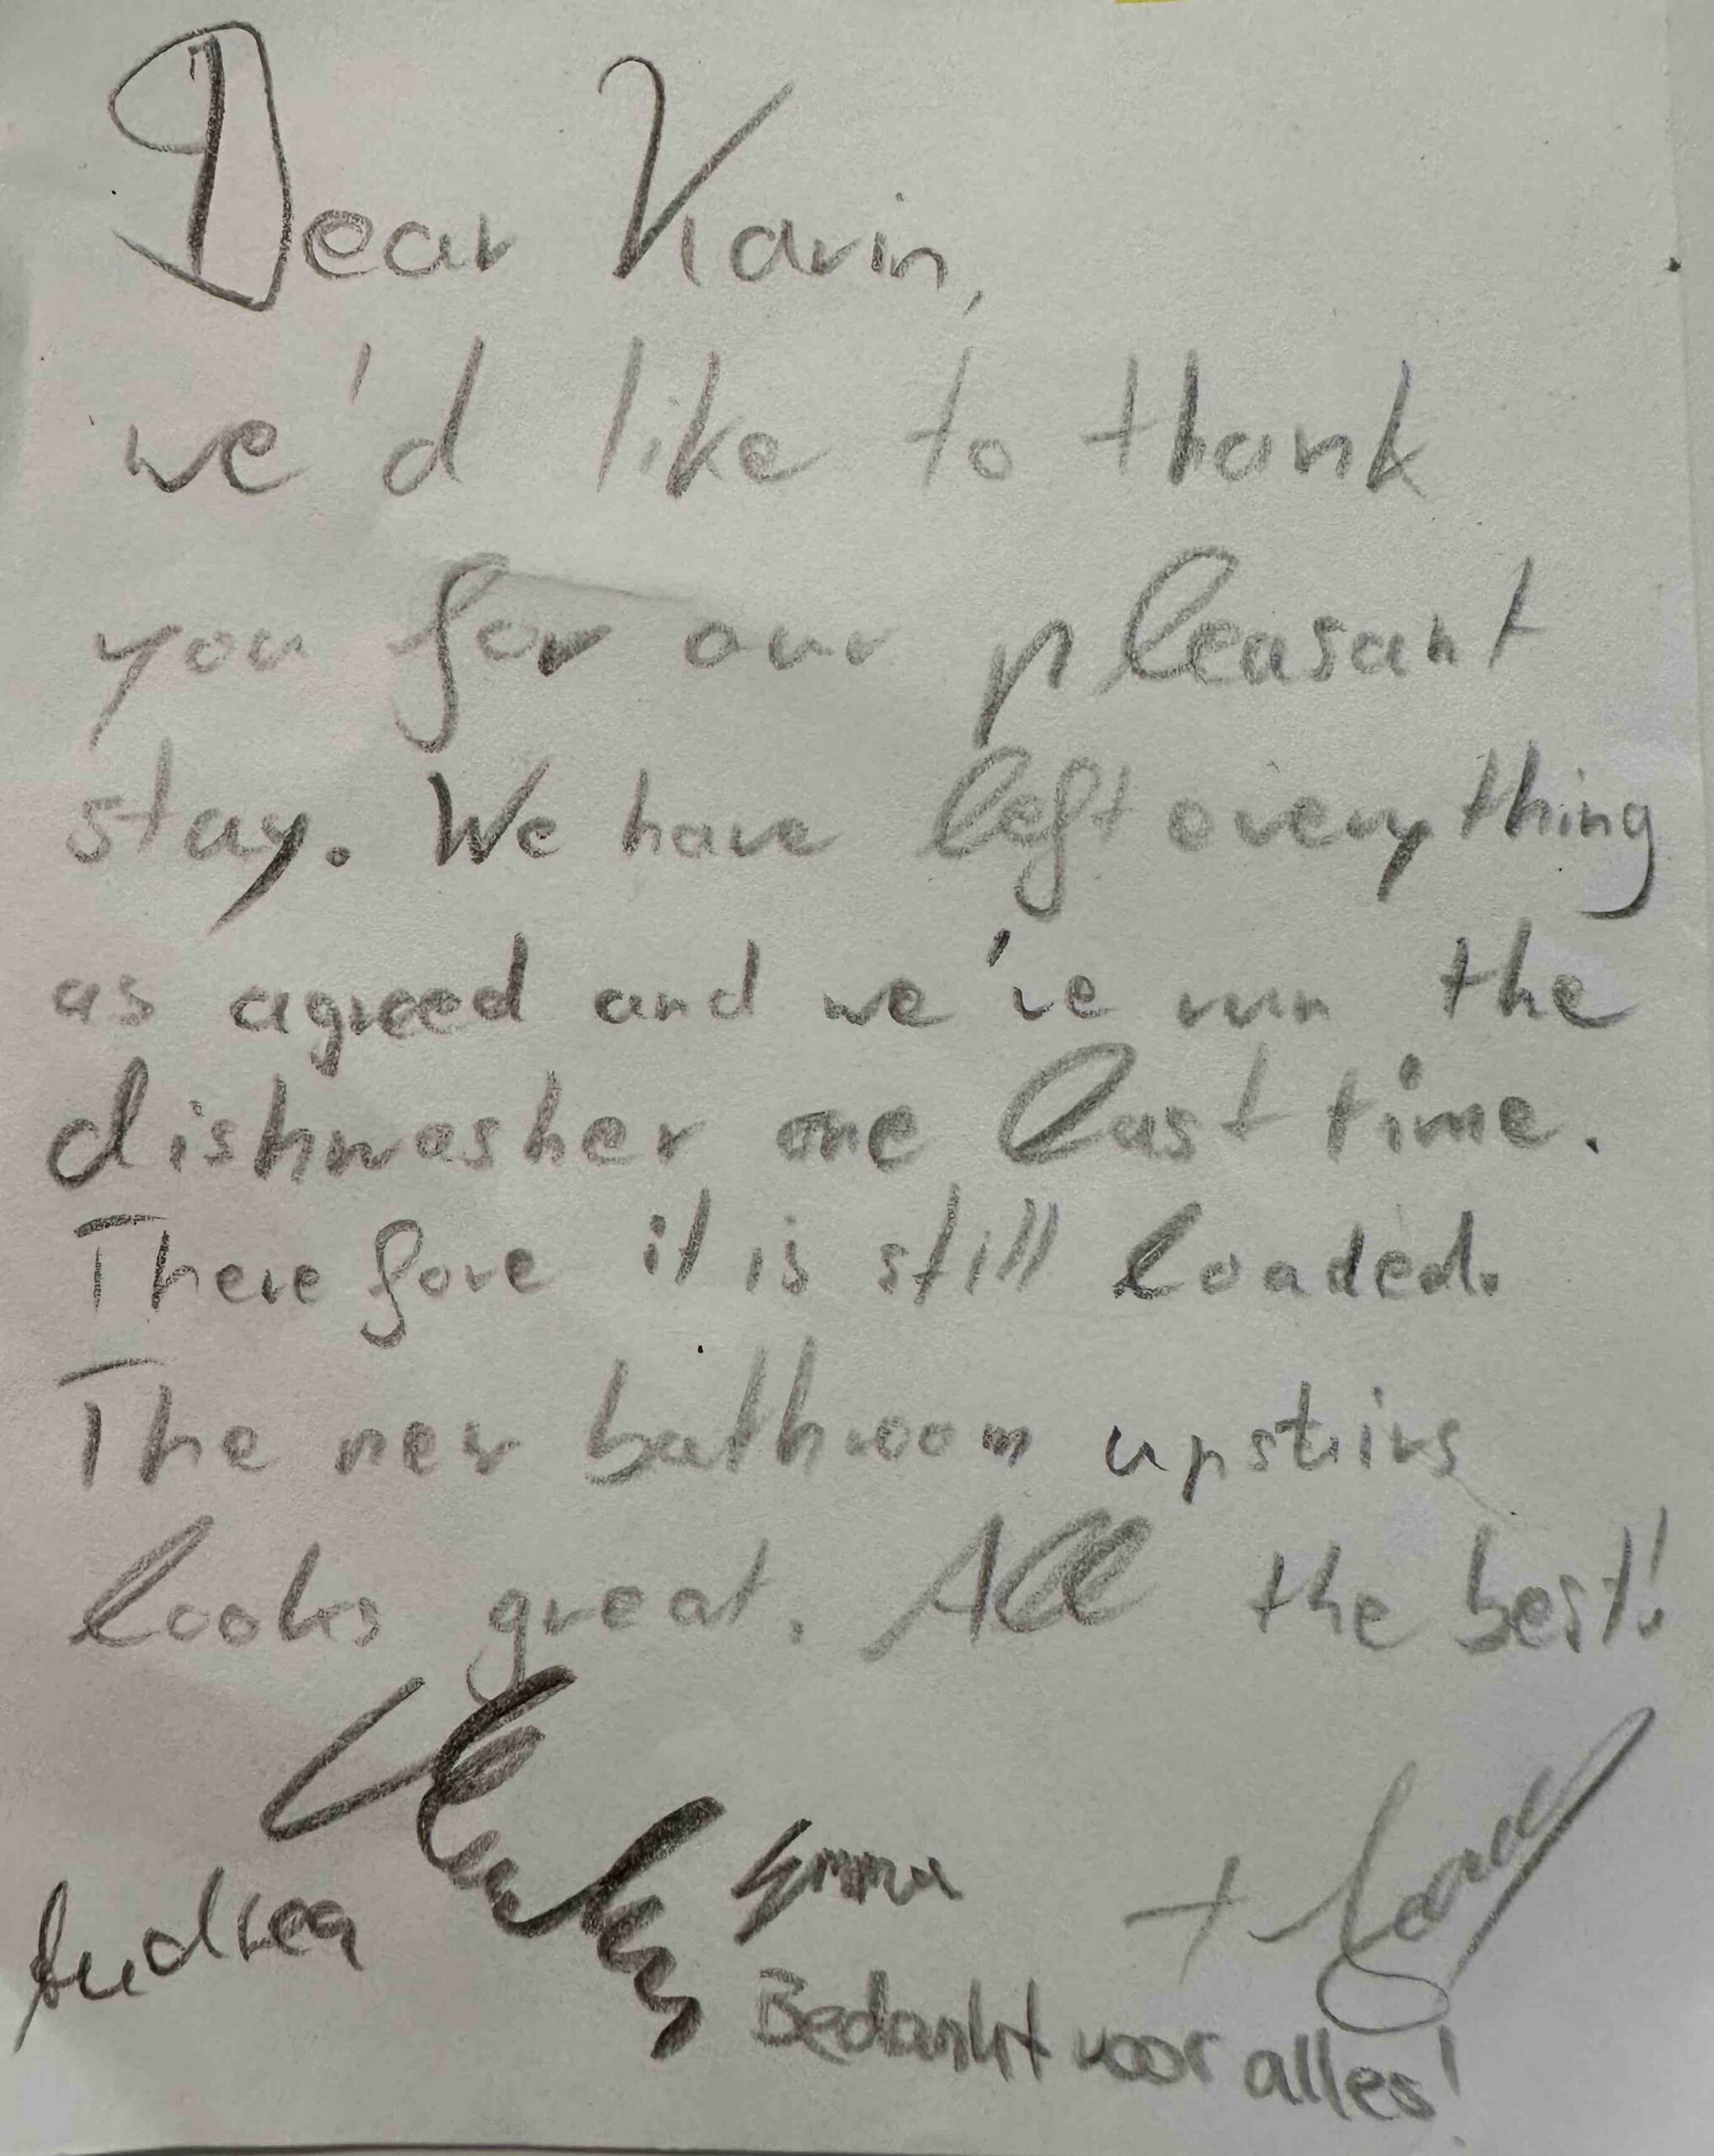 Dear Karin,
we'd like to thank
you for our pleasant
stay. We have left everything
as agreed and we've run the
dishwasher one last time.
Therefore it is still loaded.
The new bathroom upstairs
looks great. All the best!
Andrea Emma +
Bedankt voor alles!